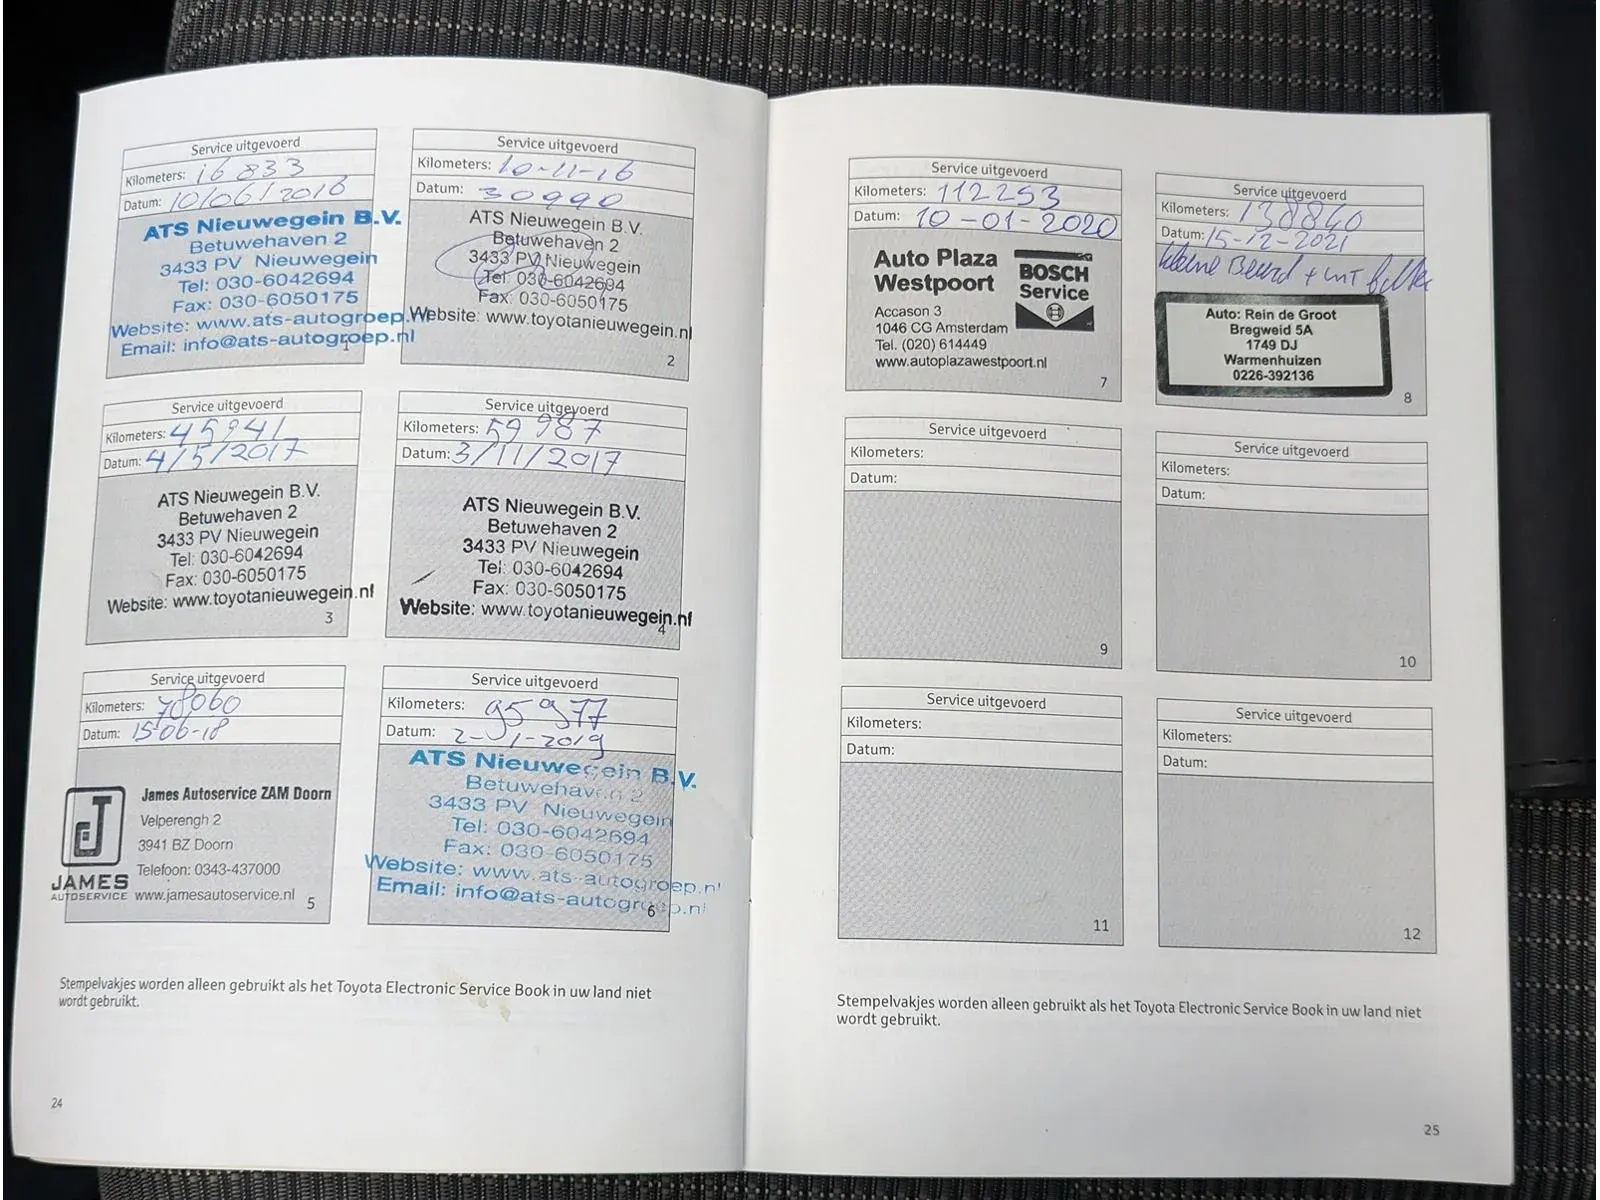 Service uitgevoerd
Kilometers: 16833
Datum: 10/06/2016
ATS Nieuwegein B.V.
Betuwehaven 2
3433 PV Nieuwegein
Tel: 030-6042694
Fax: 030-6050175
Website: www.ats-autogroep.nl
Email: info@ats-autogroep.nl
1
Service uitgevoerd
Kilometers: 10-11-16
Datum: 30990
ATS Nieuwegein B.V.
Betuwehaven 2
3433 PV Nieuwegein
Tel: 030-6042694
Fax: 030-6050175
Website: www.toyotanieuwegein.nl
2
Service uitgevoerd
Kilometers: 45941
Datum: 4/5/2017
ATS Nieuwegein B.V.
Betuwehaven 2
3433 PV Nieuwegein
Tel: 030-6042694
Fax: 030-6050175
Website: www.toyotanieuwegein.nl
3
Service uitgevoerd
Kilometers: 59987
Datum: 3/11/2017
ATS Nieuwegein B.V.
Betuwehaven 2
3433 PV Nieuwegein
Tel: 030-6042694
Fax: 030-6050175
Website: www.toyotanieuwegein.nl
4
Service uitgevoerd
Kilometers: 78060
Datum: 15-06-18
James Autoservice ZAM Doorn
Velperengh 2
3941 BZ Doorn
Telefoon: 0343-437000
www.jamesautoservice.nl
JAMES
AUTOSERVICE
5
Service uitgevoerd
Kilometers: 95977
Datum: 2-1-2019
ATS Nieuwegein B.V.
Betuwehaven 2
3433 PV Nieuwegein
Tel: 030-6042694
Fax: 030-6050175
Website: www.ats-autogroep.nl
Email: info@ats-autogroep.nl
6
Stempelvakjes worden alleen gebruikt als het Toyota Electronic Service Book in uw land niet
wordt gebruikt.
24
Service uitgevoerd
Kilometers: 112253
Datum: 10-01-2020
Auto Plaza
Westpoort
BOSCH
Service
Accason 3
1046 CG Amsterdam
Tel. (020) 614449
www.autoplazawestpoort.nl
7
Service uitgevoerd
Kilometers: 138840
Datum: 15-12-2021
kleine Beurt + int
Auto: Rein de Groot
Bregweid 5A
1749 DJ
Warmenhuizen
0226-392136
8
Service uitgevoerd
Kilometers:
Datum:
9
Service uitgevoerd
Kilometers:
Datum:
10
Service uitgevoerd
Kilometers:
Datum:
11
Service uitgevoerd
Kilometers:
Datum:
12
Stempelvakjes worden alleen gebruikt als het Toyota Electronic Service Book in uw land niet
wordt gebruikt.
25